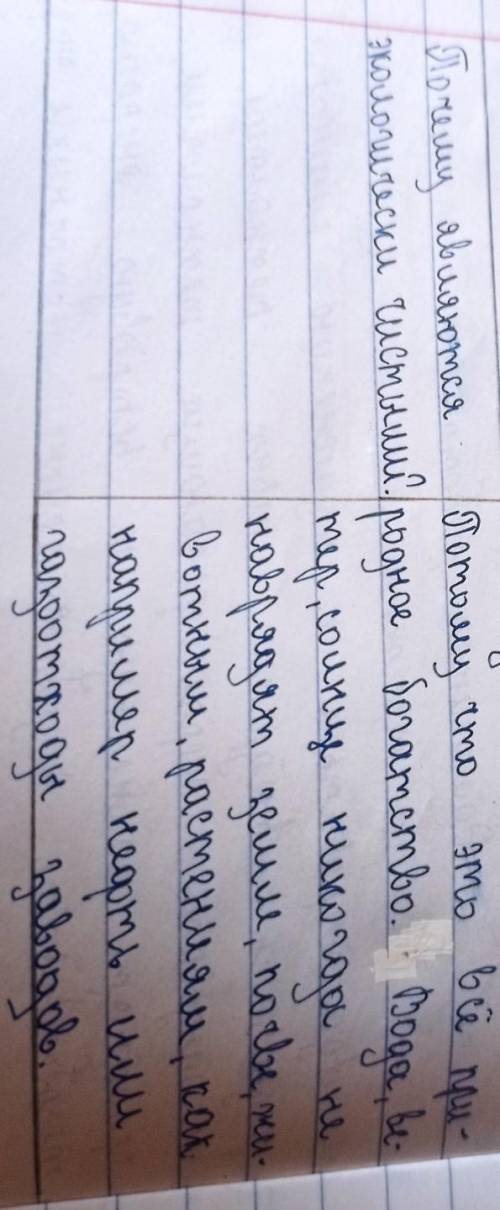 Почему являются
экологически чистыми?
Потому что это всё при-
родное богатство. Вода, ве-
тер, солнце никогда не
наврядят земле, почве, жи-
вотным, растениям, как
например нефть или
газоотходы заводов.